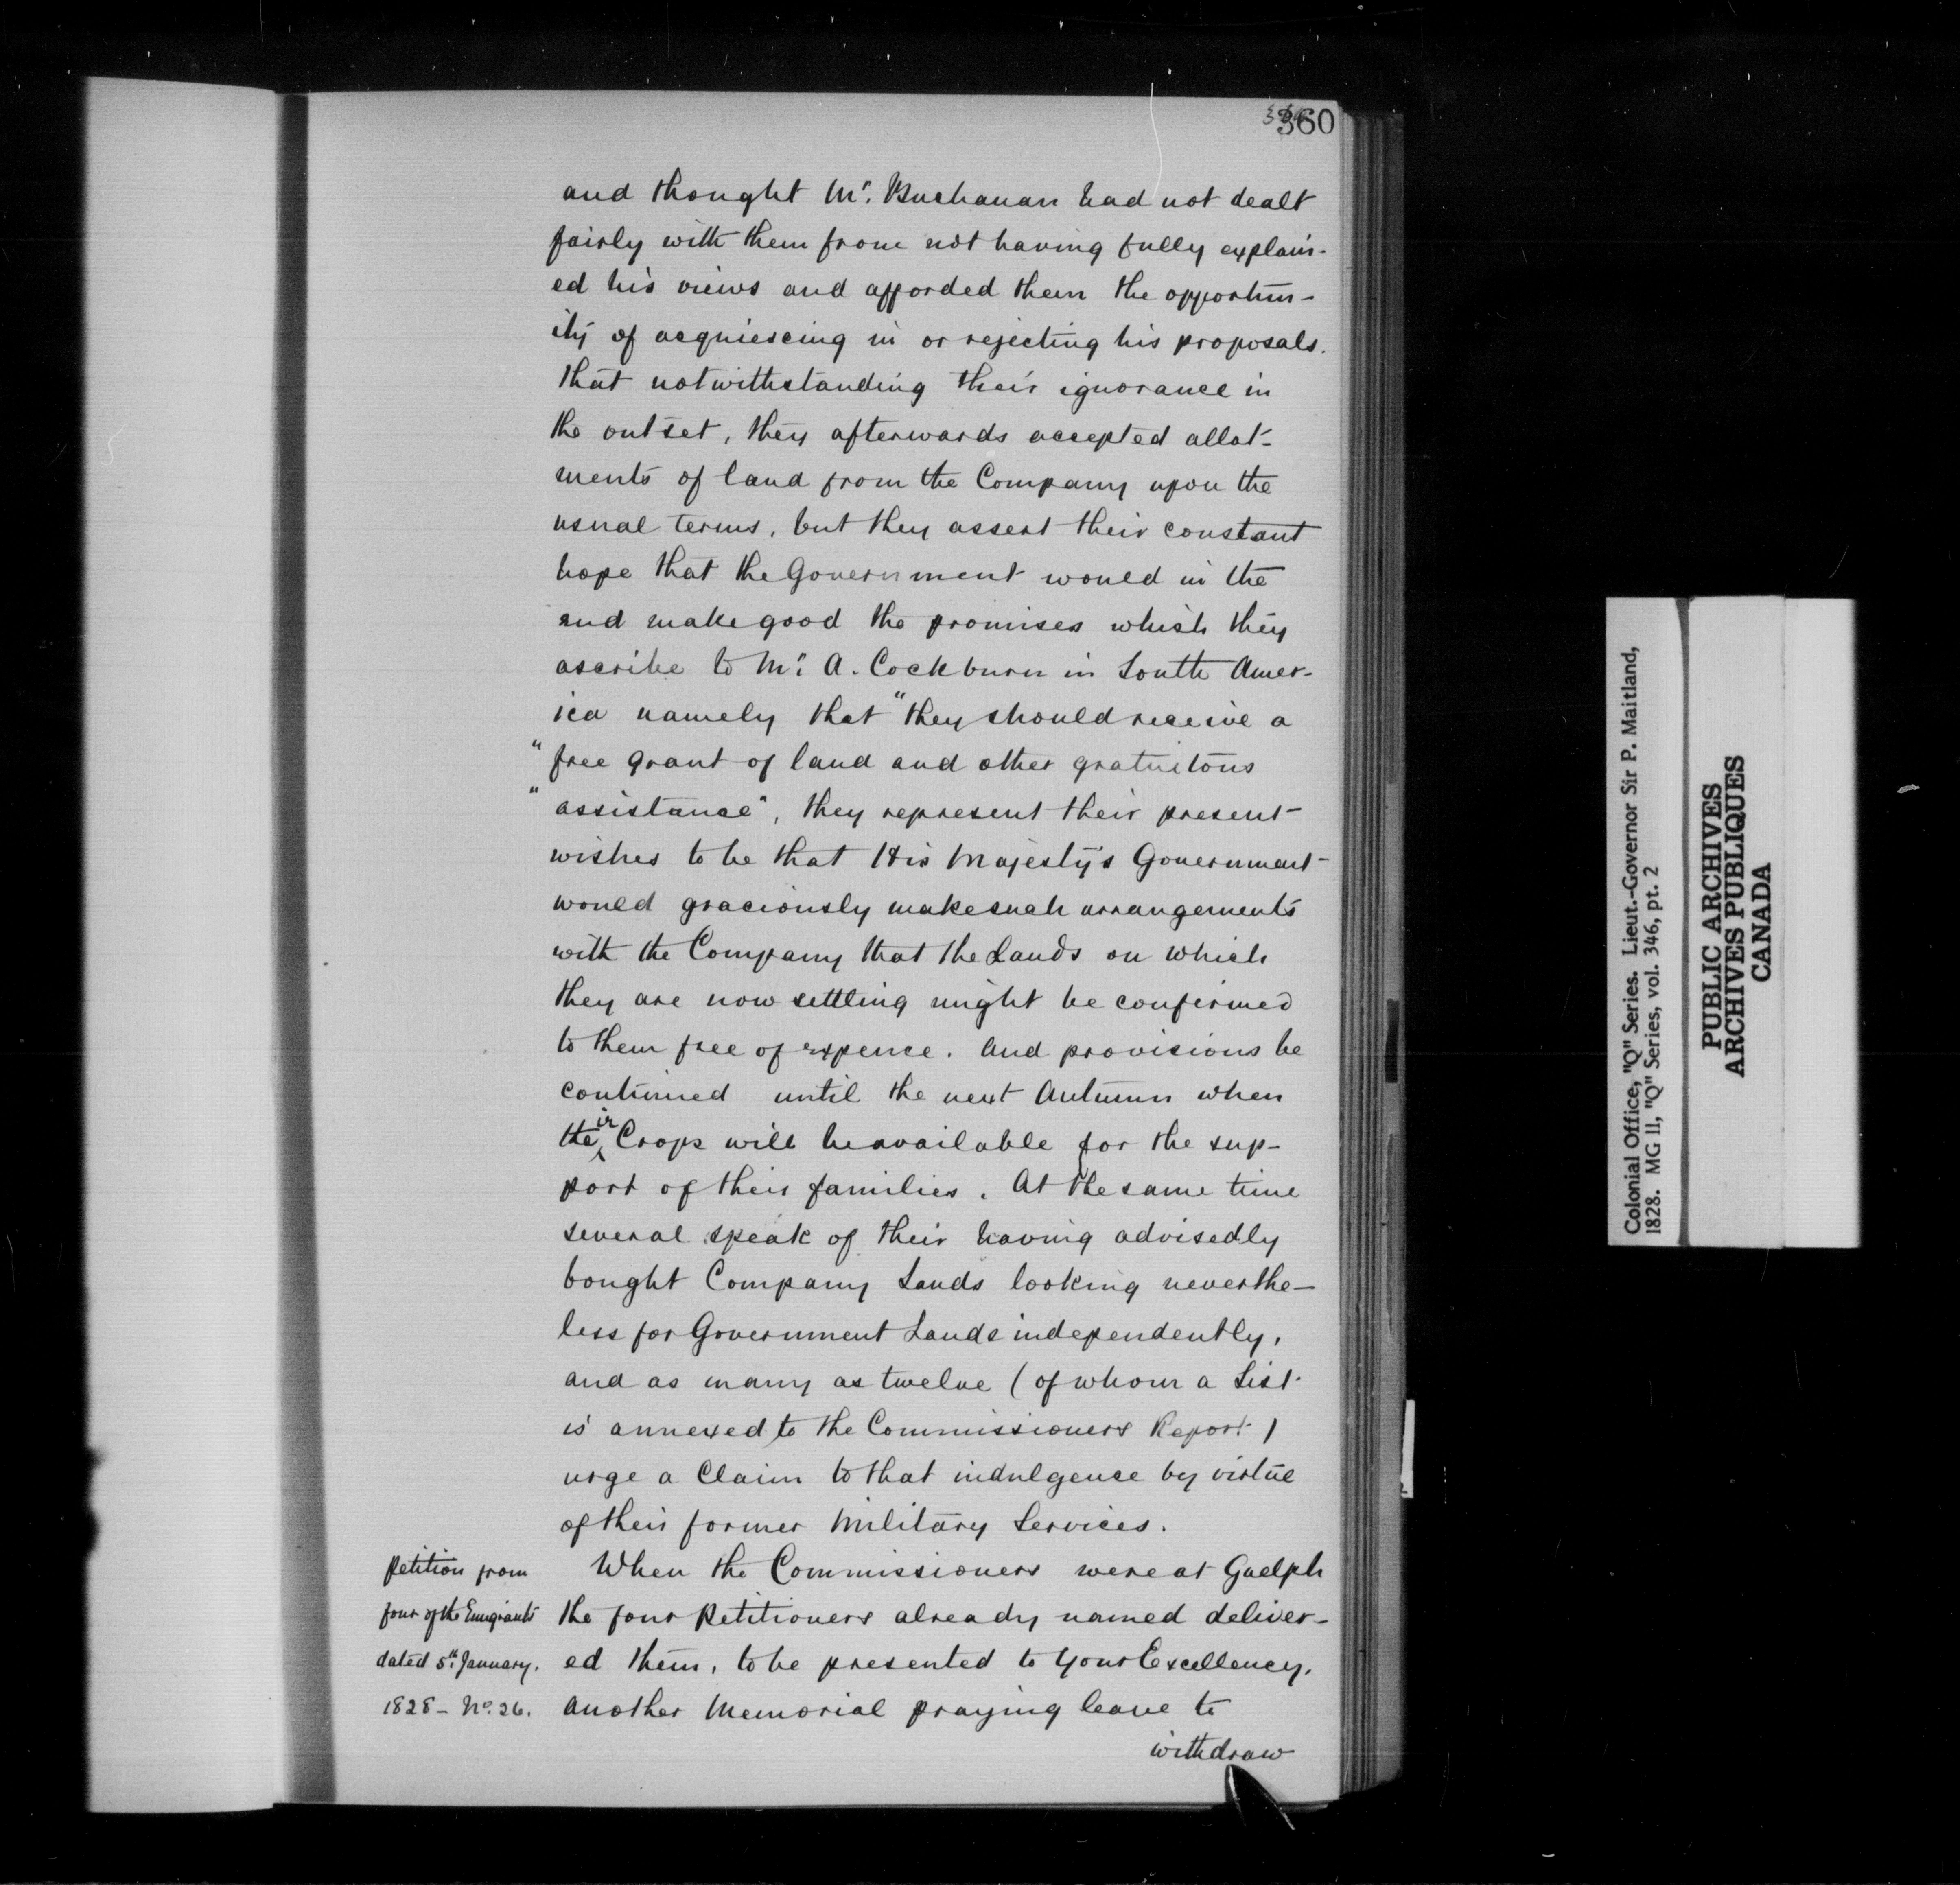 360
and thought Mr. Buchanan had not dealt
fairly with them from not having fully explain-
ed his views and afforded them the opportun-
ity of acquiescing in or rejecting his proposals.
that notwithstanding their ignorance in
the outset, they afterwards accepted allot-
ments of land from the Company upon the
usual terms, but they assert their constant
hope that the Government would in the
end make good the promises which they
ascribe to Mr. A. Cockburn in South Amer-
ica namely that "they should receive a
"free grant of land and other gratuitous
"assistance", they represent their present
wishes to be that His Majesty's Government
would graciously make such arrangements
with the Company that the Lands on which
they are now settling might be confirmed
to them free of expence. And provisions be
continued until the next Autumn when
their Crops will be available for the sup-
port of their families. At the same time
several speak of their having advisedly
bought Company Lands looking neverthe-
less for Government Lands independently,
and as many as twelve (of whom a List
is annexed to the Commissioners Report)
urge a Claim to that indulgence by virtue
of their former Military Services.
Petition from
four of the Emigrants
dated 5th. January.
1828 - No. 26.
When the Commissioners were at Guelph
the four Petitioners already named deliver-
ed them, to be presented to Your Excellency,
another Memorial praying leave to
withdraw
Colonial Office, "Q" Series. Lieut.-Governor Sir P. Maitland,
1828. MG 11, "Q" Series, vol. 346, pt. 2
PUBLIC ARCHIVES
ARCHIVES PUBLIQUES
CANADA